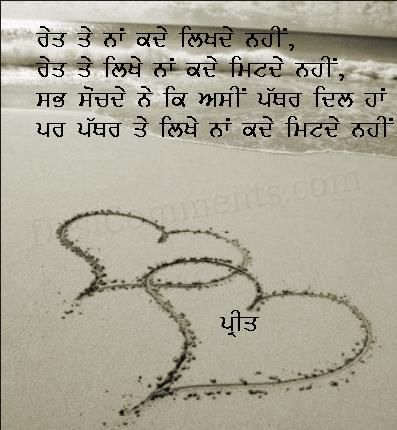 ਰੇਤ ਤੇ ਨਾਂ ਕਦੇ ਲਿਖਦੇ ਨਹੀਂ,
ਰੇਤ ਤੇ ਲਿਖੇ ਨਾਂ ਕਦੇ ਮਿਟਦੇ ਨਹੀਂ,
ਸਭ ਸੋਚਦੇ ਨੇ ਕਿ ਅਸੀਂ ਪੱਥਰ ਦਿਲ ਹਾਂ
ਪਰ ਪੱਥਰ ਤੇ ਲਿਖੇ ਨਾਂ ਕਦੇ ਮਿਟਦੇ ਨਹੀਂ
ਪ੍ਰੀਤ